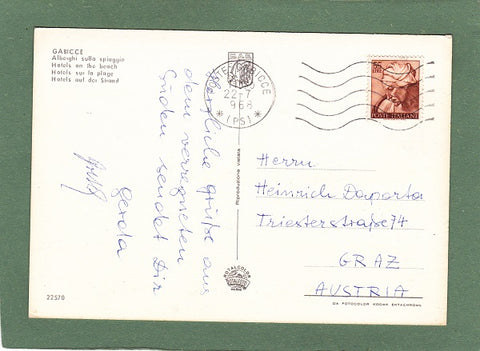 GABICCE
Alberghi sulla spiaggia
Hotels on the beach
Hotels sur la plage
Hotels auf der Strand
Herzliche Grüße aus
dem verregneten
Süden sendet Dir
Gerda
22570
Riproduzione vietata
GABICCE
22-7
968
* (PS) *
POSTE ITALIANE
Herrn
Heinrich Daporta
Triesterstraße 74
GRAZ
AUSTRIA
ROTALCOLOR
DA FOTOCOLOR KODAK EKTACHROME